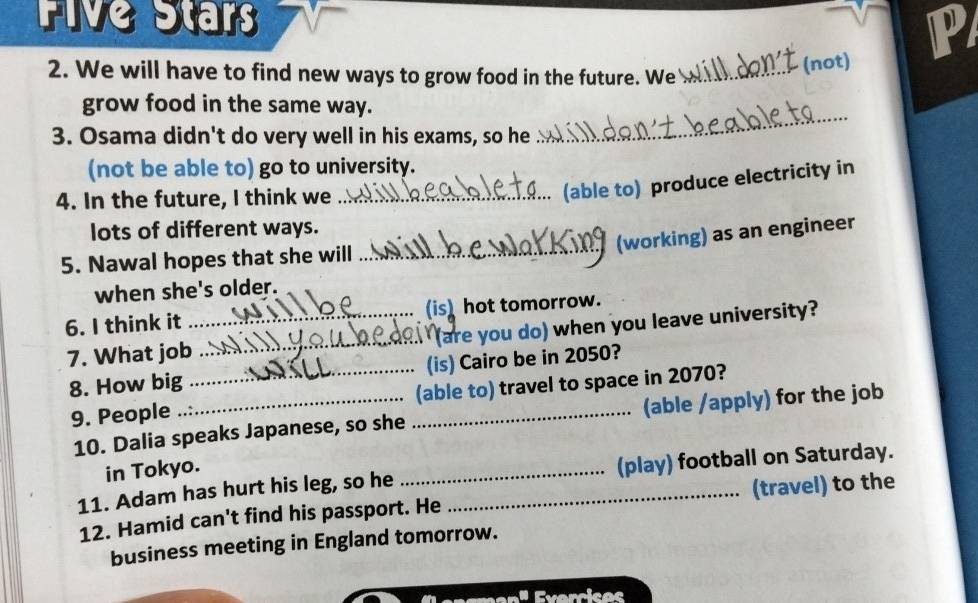 Five Stars
2. We will have to find new ways to grow food in the future. We will don't (not)
grow food in the same way.
3. Osama didn't do very well in his exams, so he will don't be able to
(not be able to) go to university.
4. In the future, I think we will be able to (able to) produce electricity in
lots of different ways.
5. Nawal hopes that she will will be working (working) as an engineer
when she's older.
6. I think it will be (is) hot tomorrow.
7. What job will you be doing (are you do) when you leave university?
8. How big will (is) Cairo be in 2050?
9. People (able to) travel to space in 2070?
10. Dalia speaks Japanese, so she (able /apply) for the job
in Tokyo.
11. Adam has hurt his leg, so he (play) football on Saturday.
12. Hamid can't find his passport. He (travel) to the
business meeting in England tomorrow.
"Longman" Exercises